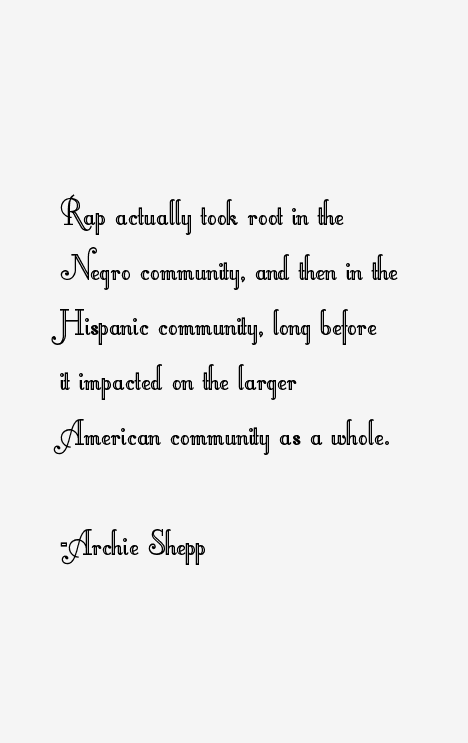 Rap actually took root in the
Negro community, and then in the
Hispanic community, long before
it impacted on the larger
American community as a whole.
-Archie Shepp